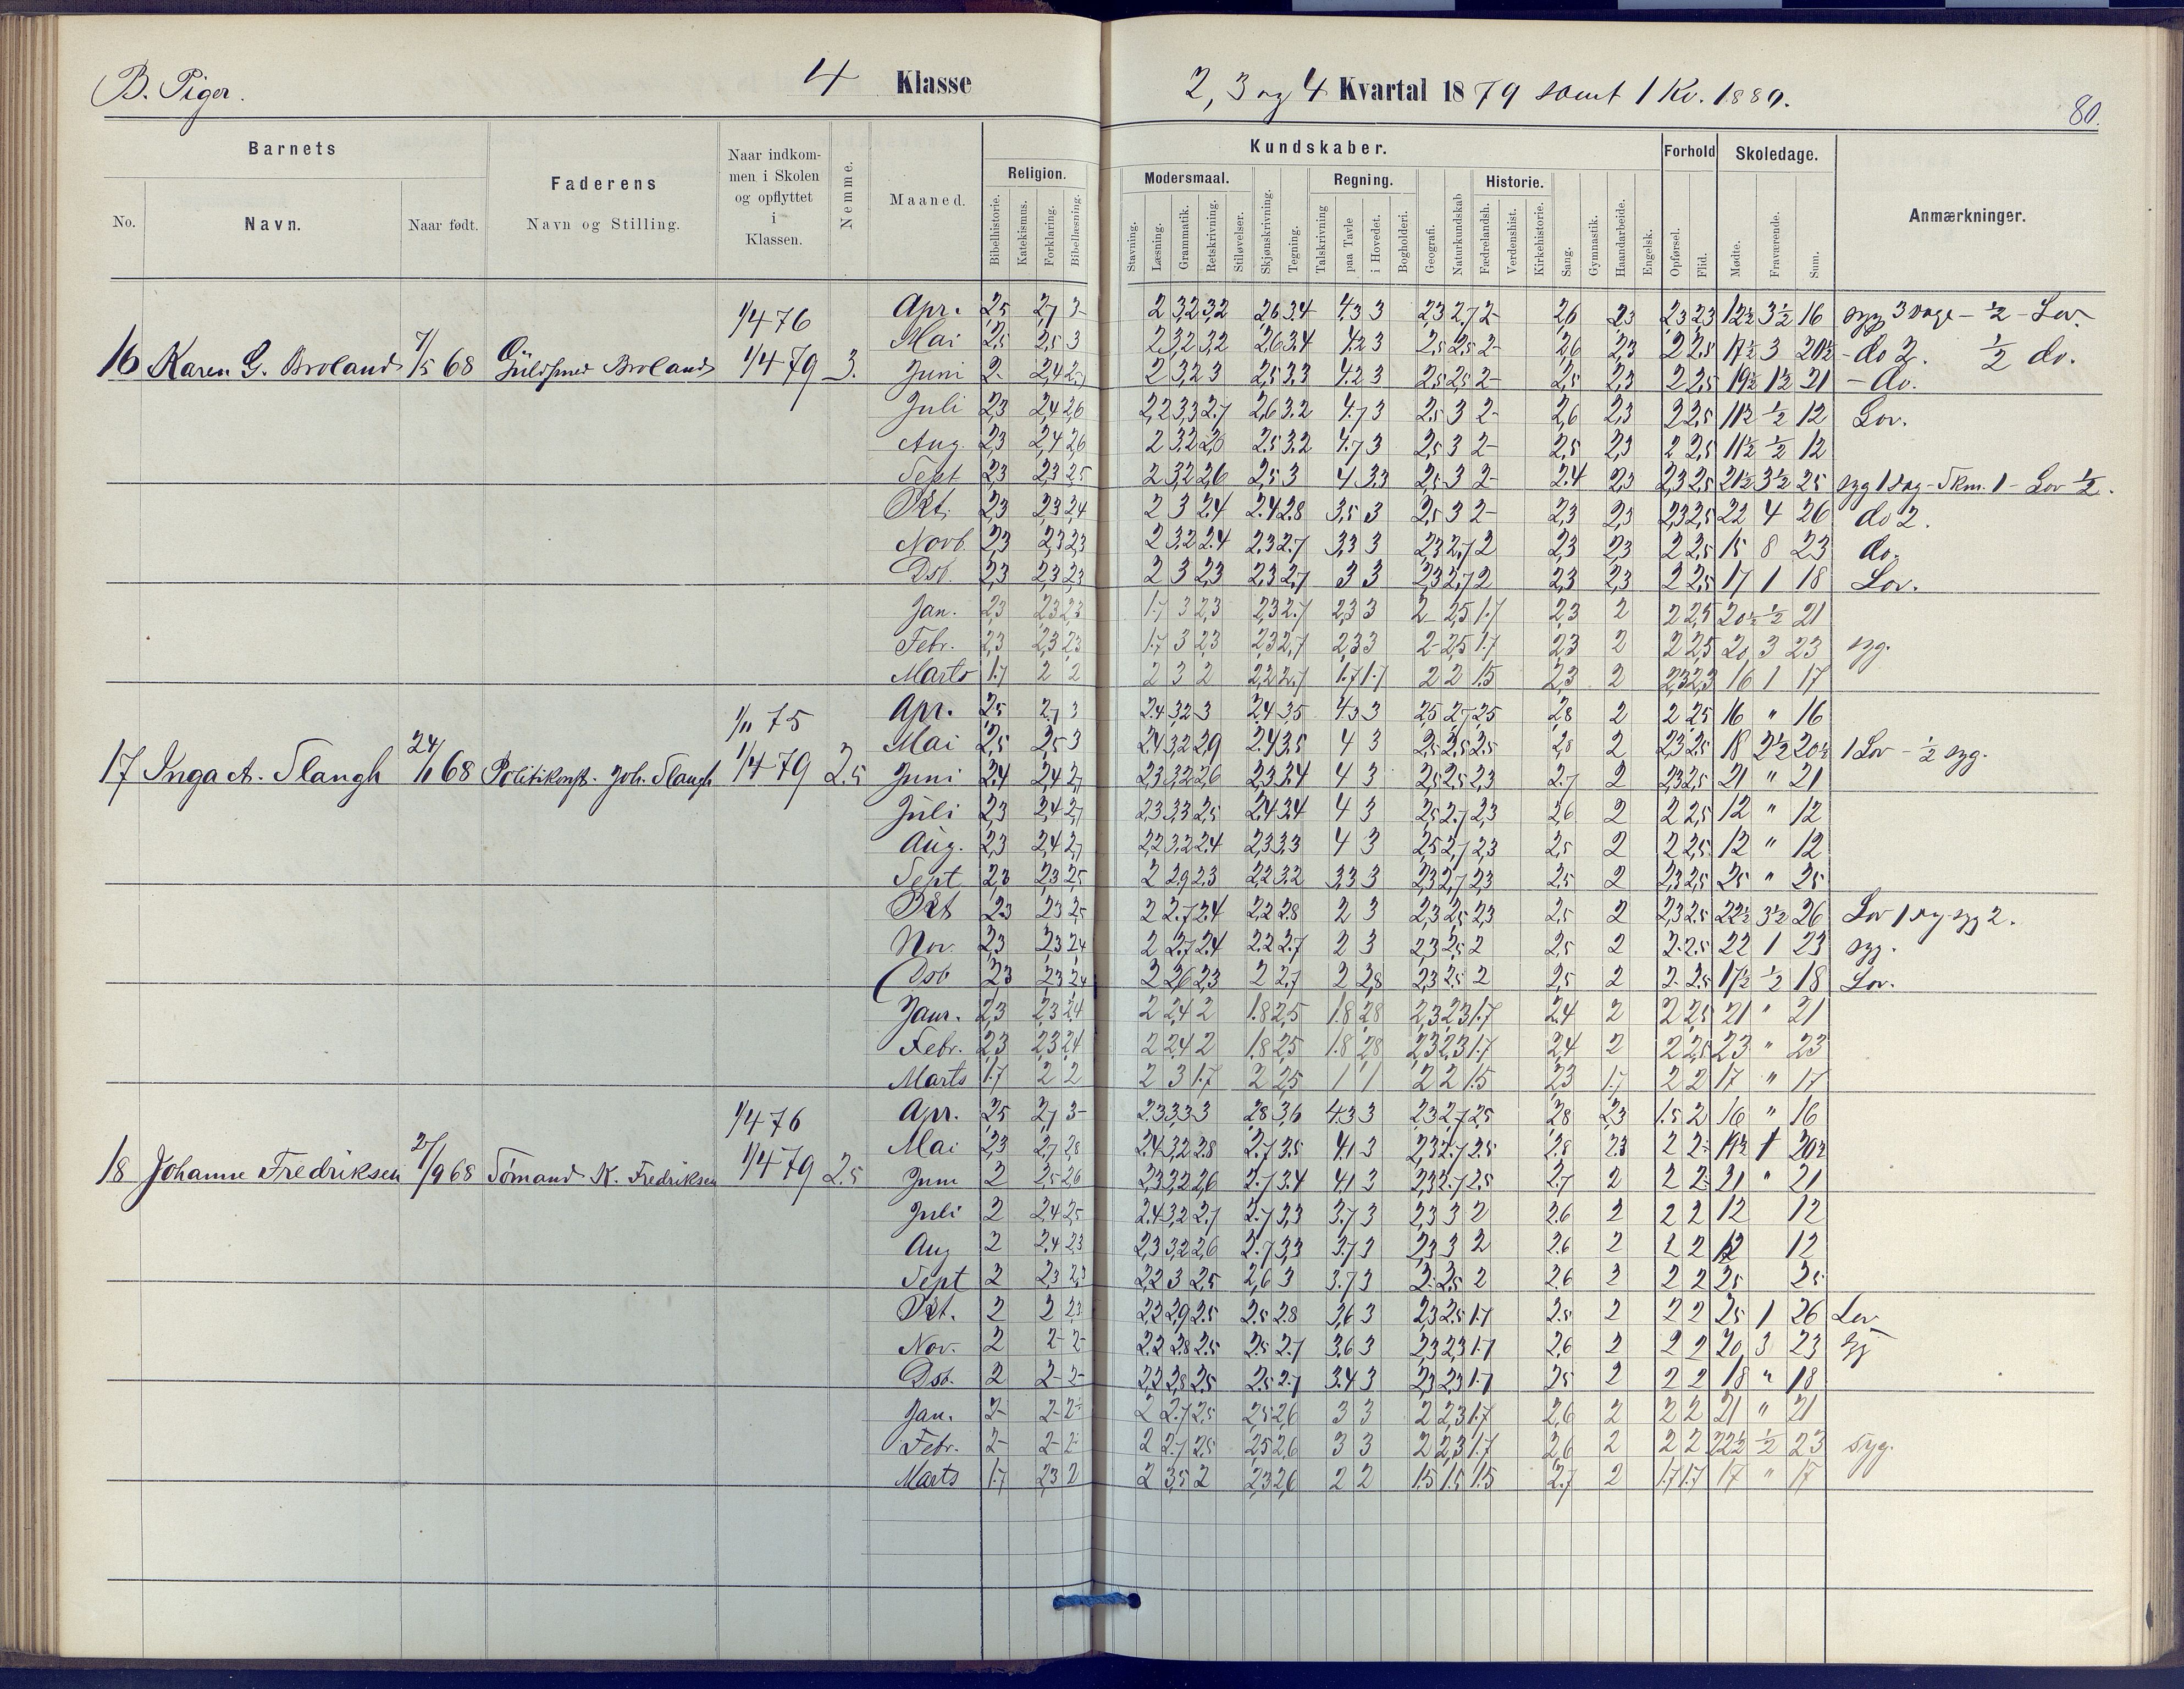 B. Piger. 4 Klasse 2, 3 og 4 Kvartal 1879 samt 1 Kv. 1880.
80.
Barnets Faderens Naar indkommen i Skolen og opflyttet i Klassen. Nemme. Maaned. Religion. Kundskaber. Forhold Skoledage. Anmærkninger.
Modersmaal. Regning. Historie.
No. Navn. Naar født. Navn og Stilling.
Bibelhistorie. Katekismus. Forklaring. Bibellæsning. Stavning. Læsning. Grammatik. Retskrivning. Stiløvelser. Skjønskrivning. Tegning. Talskrivning paa Tavle i Hovedet. Bogholderi. Geografi. Naturkundskab Fædrelandsh. Verdenshist. Kirkehistorie. Sang. Gymnastik. Haandarbeide. Engelsk. Opførsel. Flid. Mødte. Fraværende. Sum.
1/4 76
16 Karen G. Broland 7/5 68 Guldsmed Broland 1/4 79 3.
Apr. 2,5 2,7 3- 2 3,2 3,2 2,6 3,4 4,3 3 2,3 2,7 2- 2,6 2,3 2,3 2,3 12½ 3½ 16 syg 3 Dage - ½ - Lov.
Mai 2,5 2,5 3 2 3,2 3,2 2,6 3,4 4,2 3 2,5 2,5 2- 2,6 2,3 2 2,5 17½ 3 20½ - do 2. ½ do.
Juni 2- 2,4 2,7 2 3,2 3 2,5 3,3 4,2 3 2,5 2,5 2- 2,5 2,3 2 2,5 19½ 1½ 21 - do.
Juli 2,3 2,4 2,6 2,2 3,3 2,7 2,6 3,2 4,7 3 2,5 3 2- 2,6 2,3 2 2,5 11½ ½ 12 Lov.
Aug. 2,3 2,4 2,6 2 3,2 2,6 2,5 3,2 4,7 3 2,5 3 2- 2,5 2,3 2 2,5 11½ ½ 12
Sept 2,3 2,3 2,5 2 3,2 2,6 2,5 3 4 3,3 2,5 3 2- 2,4 2,3 2,3 2,5 21½ 3½ 25 syg 1 Dag - Skm. 1 - Lov ½.
Okt. 2,3 2,3 2,4 2 3 2,4 2,4 2,8 3,5 3 2,5 3 2- 2,3 2,3 2,3 2,5 22 4 26 do 2.
Novb. 2,3 2,3 2,3 2 3,2 2,4 2,3 2,7 3,3 3 2,3 2,7 2 2,3 2,3 2 2,5 15 8 23 do.
Dsb. 2,3 2,3 2,3 2 3 2,3 2,3 2,7 3 3 2,3 2,7 2 2,3 2,3 2 2,5 17 1 18 Lov.
Jan. 2,3 2,3 2,3 1,7 3 2,3 2,3 2,7 2,3 3 2- 2,5 1,7 2,3 2 2 2,5 20½ ½ 21
Febr. 2,3 2,3 2,3 1,7 3 2,3 2,3 2,7 2,3 3 2- 2,5 1,7 2,3 2 2 2,5 20 3 23 syg.
Marts 1,7 2 2 2 3 2 2,2 2,7 1,7 1,7 2 2 1,5 2,3 2 2,3 2,3 16 1 17
1/11 75
17 Inga A. Slangh 24/11 68 Politikonst. Joh. Slangh 1/4 79 2.5
Apr. 2,5 2,7 3 2,4 3,2 3 2,4 3,5 4,3 3 2,5 2,7 2,5 2,8 2 2 2,5 16 " 16
Mai 2,5 2,5 3 2,4 3,2 2,9 2,4 3,5 4 3 2,5 2,5 2,5 2,8 2 2,3 2,5 18 2½ 20½ 1 Lov - ½ syg.
Juni 2,4 2,4 2,7 2,3 3,2 2,6 2,3 3,4 4 3 2,5 2,5 2,3 2,7 2 2,3 2,5 21 " 21
Juli 2,3 2,4 2,7 2,3 3,3 2,5 2,4 3,4 4 3 2,5 2,7 2,3 2,6 2 2 2,5 12 " 12
Aug. 2,3 2,4 2,7 2,2 3,2 2,4 2,3 3,3 4 3 2,5 2,7 2,3 2,5 2 2 2,5 12 " 12
Sept 2,3 2,3 2,5 2 2,9 2,3 2,2 3,2 3,3 3 2,3 2,7 2,3 2,5 2 2,3 2,5 25 " 25
Okt 2,3 2,3 2,5 2 2,7 2,4 2,2 2,8 2 3 2,3 2,5 2,3 2,5 2 2,3 2,5 22½ 3½ 26 Lov 1 og syg 2.
Nov. 2,3 2,3 2,4 2 2,7 2,4 2,2 2,7 2 3 2,3 2,5 2 2,5 2 2 2,5 22 1 23 syg.
Dsb 2,3 2,3 2,4 2 2,6 2,3 2 2,7 2 2,8 2,3 2,5 2 2,5 2 2 2,5 17½ ½ 18 Lov.
Janr. 2,3 2,3 2,4 2 2,4 2 1,8 2,5 1,8 2,8 2,3 2,3 1,7 2,4 2 2 2,5 21 " 21
Febr. 2,3 2,3 2,4 2 2,4 2 1,8 2,5 1,8 2,8 2,3 2,3 1,7 2,4 2 2 2,5 23 " 23
Marts 1,7 2 2 2 3 1,7 2 2,5 1 1 2 2 1,5 2,3 1,7 2 2 17 " 17
1/4 76
18 Johanne Fredriksen 27/9 68 Sömand K. Fredriksen 1/4 79 2.5
Apr. 2,5 2,7 3- 2,3 3,3 3 2,8 3,6 4,3 3 2,3 2,7 2,5 2,8 2,3 1,5 2 16 " 16
Mai 2,3 2,7 2,8 2,4 3,2 2,8 2,7 3,5 4,1 3 2,3 2,7 2,5 2,8 2,3 2 2- 19½ 1 20½
Juni 2 2,5 2,6 2,3 3,2 2,6 2,7 3,4 4,1 3 2,3 2,7 2,5 2,7 2 2 2- 21 " 21
Juli 2 2,4 2,5 2,4 3,2 2,7 2,7 3,3 3,7 3 2,3 3 2 2,6 2 2 2 12 12
Aug 2 2,4 2,3 2,3 3,2 2,6 2,7 3,3 3,7 3 2,3 3 2 2,6 2 2 2 12 12
Sept 2 2,3 2,3 2,2 3 2,5 2,6 3 3,7 3 2- 2,5 2 2,6 2 2 2 25 25
Okt. 2 2 2,3 2,2 2,9 2,5 2,5 2,8 3,6 3 2,3 2,5 1,7 2,5 2 2 2 25 1 26 Lov
Nov. 2 2- 2- 2,2 2,8 2,5 2,5 2,7 3,6 3 2,3 2,3 1,7 2,6 2 2 2 20 3 23
Dsb. 2 2- 2- 2,2 2,8 2,5 2,5 2,7 3,4 3 2,3 2,3 1,7 2,5 2 2 2 18 " 18
Jan. 2- 2- 2- 2 2,7 2,5 2,5 2,6 3 3 2 2,3 1,7 2,6 2 2 2 21 " 21
Febr. 2- 2- 2- 2 2,7 2,5 2,5 2,6 3 3 2 2,3 1,7 2,6 2 2 2 22½ ½ 23 syg.
Marts 1,7 2,3 2 2 3,5 2 2,3 2,6 2 2 1,5 1,5 1,5 2,7 2 1,7 1,7 17 " 17